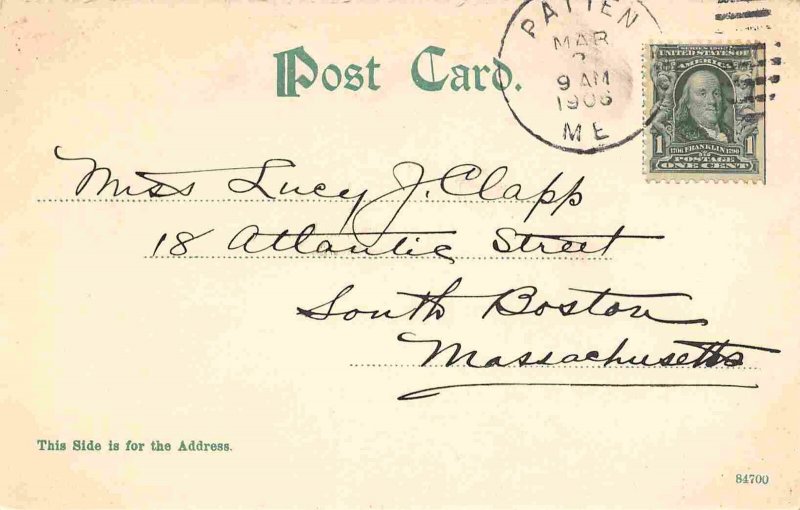 PATTEN
MAR
9 AM
1906
ME
SERIES 1902
UNITED STATES OF
AMERICA
1 1
1706 FRANKLIN 1790
POSTAGE
ONE CENT
Post Card.
Miss Lucy J. Clapp
18 Atlantic Street
South Boston
Massachusetts
This Side is for the Address.
84700